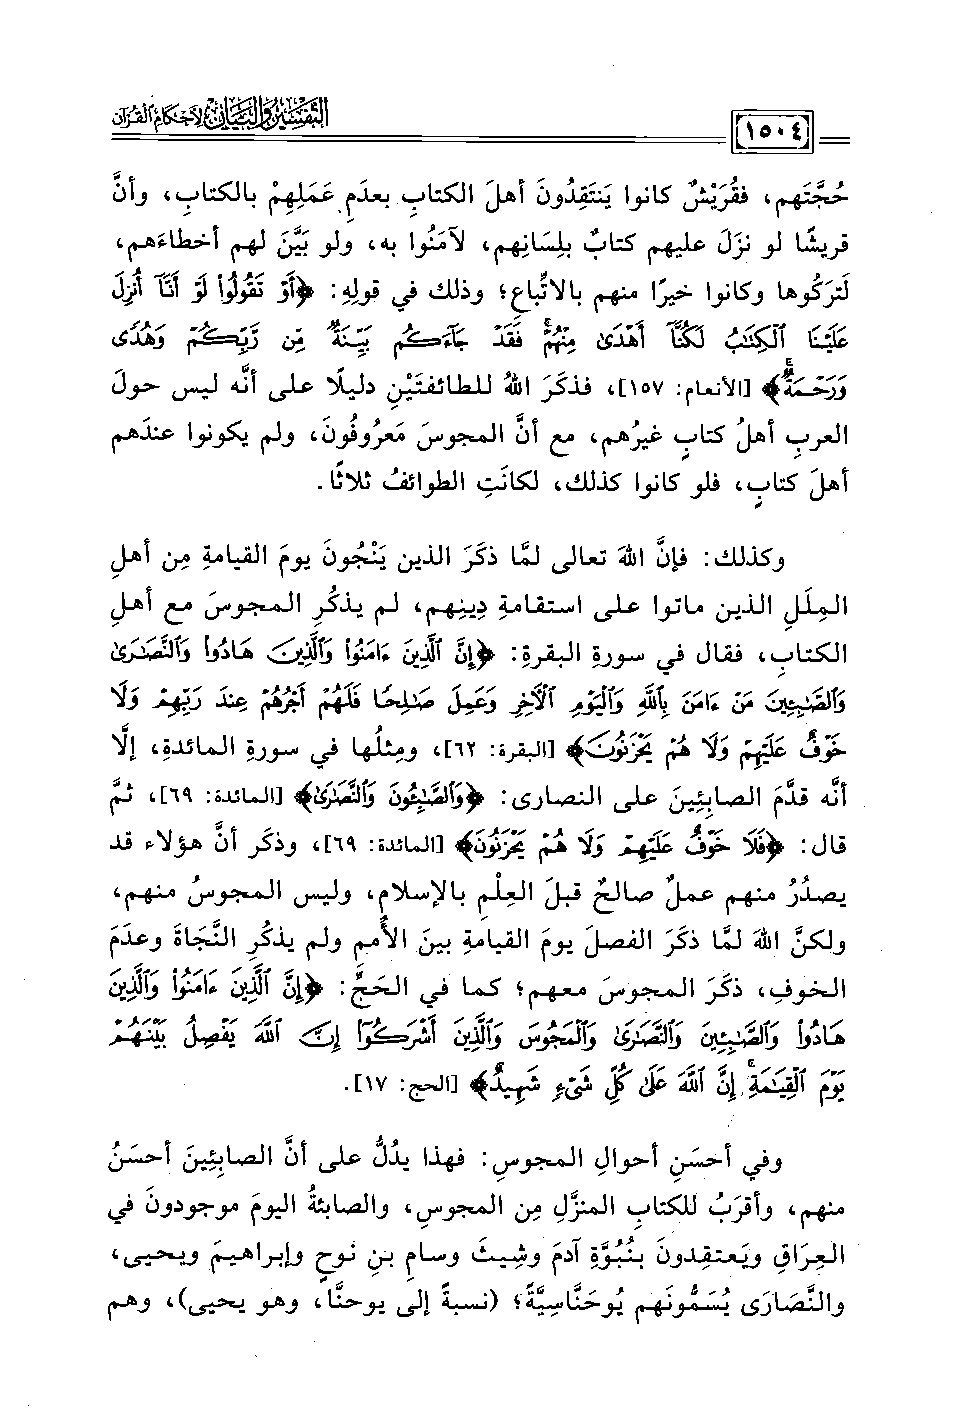 التفسير والبيان لأحكام القرآن
١٥٠٤
حُجَّتَهم، فقُرَيْشٌ كانوا يَنتَقِدُونَ أهلَ الكتابِ بعدَمِ عَمَلِهِمْ بالكتابِ، وأنَّ
قريشًا لو نزَلَ عليهم كتابٌ بلِسَانِهم، لآمَنُوا به، ولو بيَّنَ لهم أخطاءَهم،
لَترَكُوها وكانوا خيرًا منهم بالاتِّباعِ؛ وذلك في قولِهِ: ﴿أَوْ تَقُولُوا۟ لَوْ أَنَّآ أُنزِلَ
عَلَيْنَا ٱلْكِتَٰبُ لَكُنَّآ أَهْدَىٰ مِنْهُمْ ۚ فَقَدْ جَآءَكُم بَيِّنَةٌ مِّن رَّبِّكُمْ وَهُدًى
وَرَحْمَةٌ ۚ﴾ [الأنعام: ١٥٧]، فذكَرَ اللهُ للطائفتَيْنِ دليلًا على أنَّه ليس حولَ
العربِ أهلُ كتابٍ غيرُهم، مع أنَّ المجوسَ مَعرُوفُونَ، ولم يكونوا عندَهم
أهلَ كتابٍ، فلو كانوا كذلك، لكانَتِ الطوائفُ ثلاثًا.
وكذلك: فإنَّ اللهَ تعالى لمَّا ذكَرَ الذين يَنْجُونَ يومَ القيامةِ مِن أهلِ
المِلَلِ الذين ماتوا على استقامةِ دِينِهم، لم يذكُرِ المجوسَ مع أهلِ
الكتابِ، فقال في سورةِ البقرةِ: ﴿إِنَّ ٱلَّذِينَ ءَامَنُوا۟ وَٱلَّذِينَ هَادُوا۟ وَٱلنَّصَٰرَىٰ
وَٱلصَّٰبِـِٔينَ مَنْ ءَامَنَ بِٱللَّهِ وَٱلْيَوْمِ ٱلْـَٔاخِرِ وَعَمِلَ صَٰلِحًا فَلَهُمْ أَجْرُهُمْ عِندَ رَبِّهِمْ وَلَا
خَوْفٌ عَلَيْهِمْ وَلَا هُمْ يَحْزَنُونَ﴾ [البقرة: ٦٢]، ومِثلُها في سورةِ المائدةِ، إلَّا
أنَّه قدَّمَ الصابِئِينَ على النصارى: ﴿وَٱلصَّٰبِـُٔونَ وَٱلنَّصَٰرَىٰ﴾ [المائدة: ٦٩]، ثمَّ
قال: ﴿فَلَا خَوْفٌ عَلَيْهِمْ وَلَا هُمْ يَحْزَنُونَ﴾ [المائدة: ٦٩]، وذكَر أنَّ هؤلاء قد
يصدُرُ منهم عملٌ صالحٌ قبلَ العِلْمِ بالإسلامِ، وليس المجوسُ منهم،
ولكنَّ اللهَ لمَّا ذكَرَ الفصلَ يومَ القيامةِ بينَ الأُممِ ولم يذكُرِ النَّجَاةَ وعدَمَ
الخوفِ، ذكَرَ المجوسَ معهم؛ كما في الحَجِّ: ﴿إِنَّ ٱلَّذِينَ ءَامَنُوا۟ وَٱلَّذِينَ
هَادُوا۟ وَٱلصَّٰبِـِٔينَ وَٱلنَّصَٰرَىٰ وَٱلْمَجُوسَ وَٱلَّذِينَ أَشْرَكُوٓا۟ إِنَّ ٱللَّهَ يَفْصِلُ بَيْنَهُمْ
يَوْمَ ٱلْقِيَٰمَةِ ۚ إِنَّ ٱللَّهَ عَلَىٰ كُلِّ شَىْءٍ شَهِيدٌ﴾ [الحج: ١٧].
وفي أحسَنِ أحوالِ المجوسِ: فهذا يدُلُّ على أنَّ الصابِئِينَ أحسَنُ
منهم، وأقرَبُ للكتابِ المنزَّلِ مِن المجوسِ، والصابئةُ اليومَ موجودونَ في
العِرَاقِ ويَعتقِدونَ بنُبُوَّةِ آدمَ وشِيثَ وسامِ بنِ نوحٍ وإبراهيمَ ويحيى،
والنَّصَارَى يُسَمُّونَهم يُوحَنَّاسِيَّةً؛ (نسبةً إلى يوحنَّا، وهو يحيى)، وهم